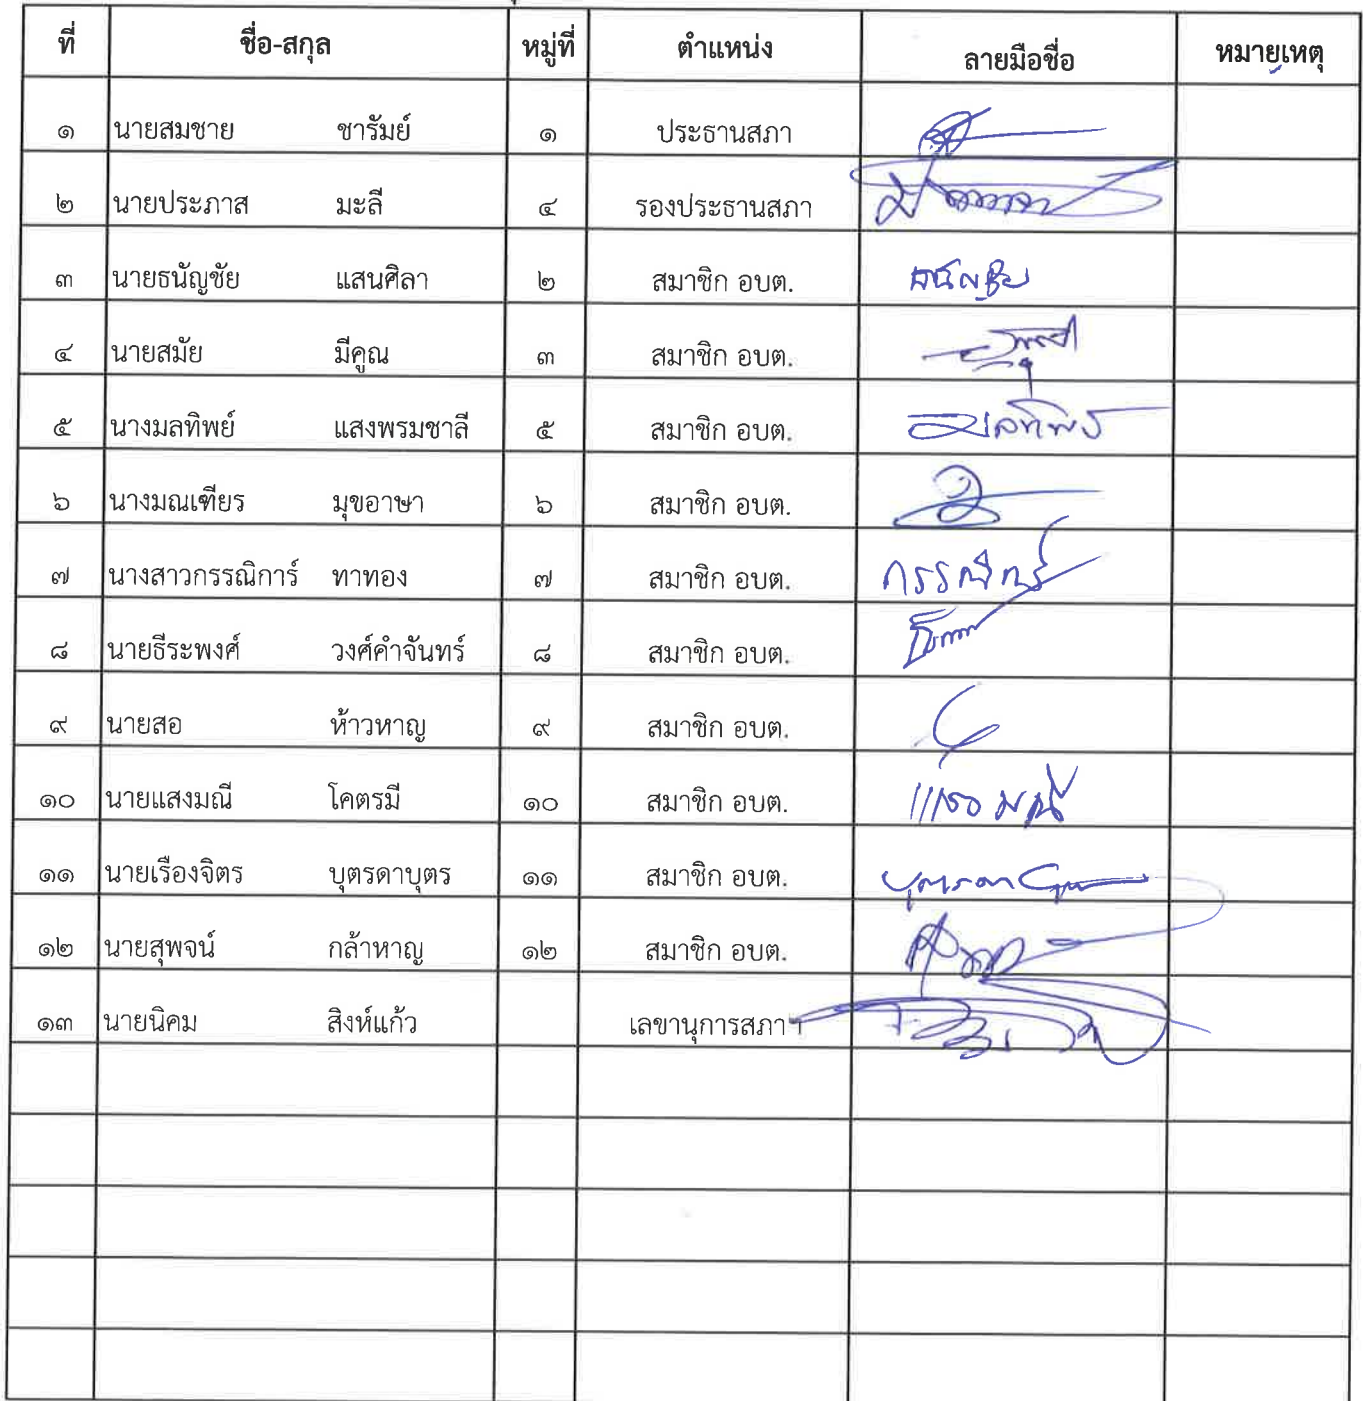 ที่ ชื่อ-สกุล หมู่ที่ ตำแหน่ง ลายมือชื่อ หมายเหตุ
๑ นายสมชาย ชารัมย์ ๑ ประธานสภา
๒ นายประภาส มะลี ๔ รองประธานสภา
๓ นายธนัญชัย แสนศิลา ๒ สมาชิก อบต. ธนัญชัย
๔ นายสมัย มีคูณ ๓ สมาชิก อบต.
๕ นางมลทิพย์ แสงพรมชาลี ๕ สมาชิก อบต. มลทิพย์
๖ นางมณเฑียร มุขอาษา ๖ สมาชิก อบต.
๗ นางสาวกรรณิการ์ ทาทอง ๗ สมาชิก อบต. กรรณิการ์
๘ นายธีระพงศ์ วงศ์คำจันทร์ ๘ สมาชิก อบต.
๙ นายสอ ห้าวหาญ ๙ สมาชิก อบต.
๑๐ นายแสงมณี โคตรมี ๑๐ สมาชิก อบต. แสงมณี
๑๑ นายเรืองจิตร บุตรดาบุตร ๑๑ สมาชิก อบต.
๑๒ นายสุพจน์ กล้าหาญ ๑๒ สมาชิก อบต.
๑๓ นายนิคม สิงห์แก้ว เลขานุการสภาฯ